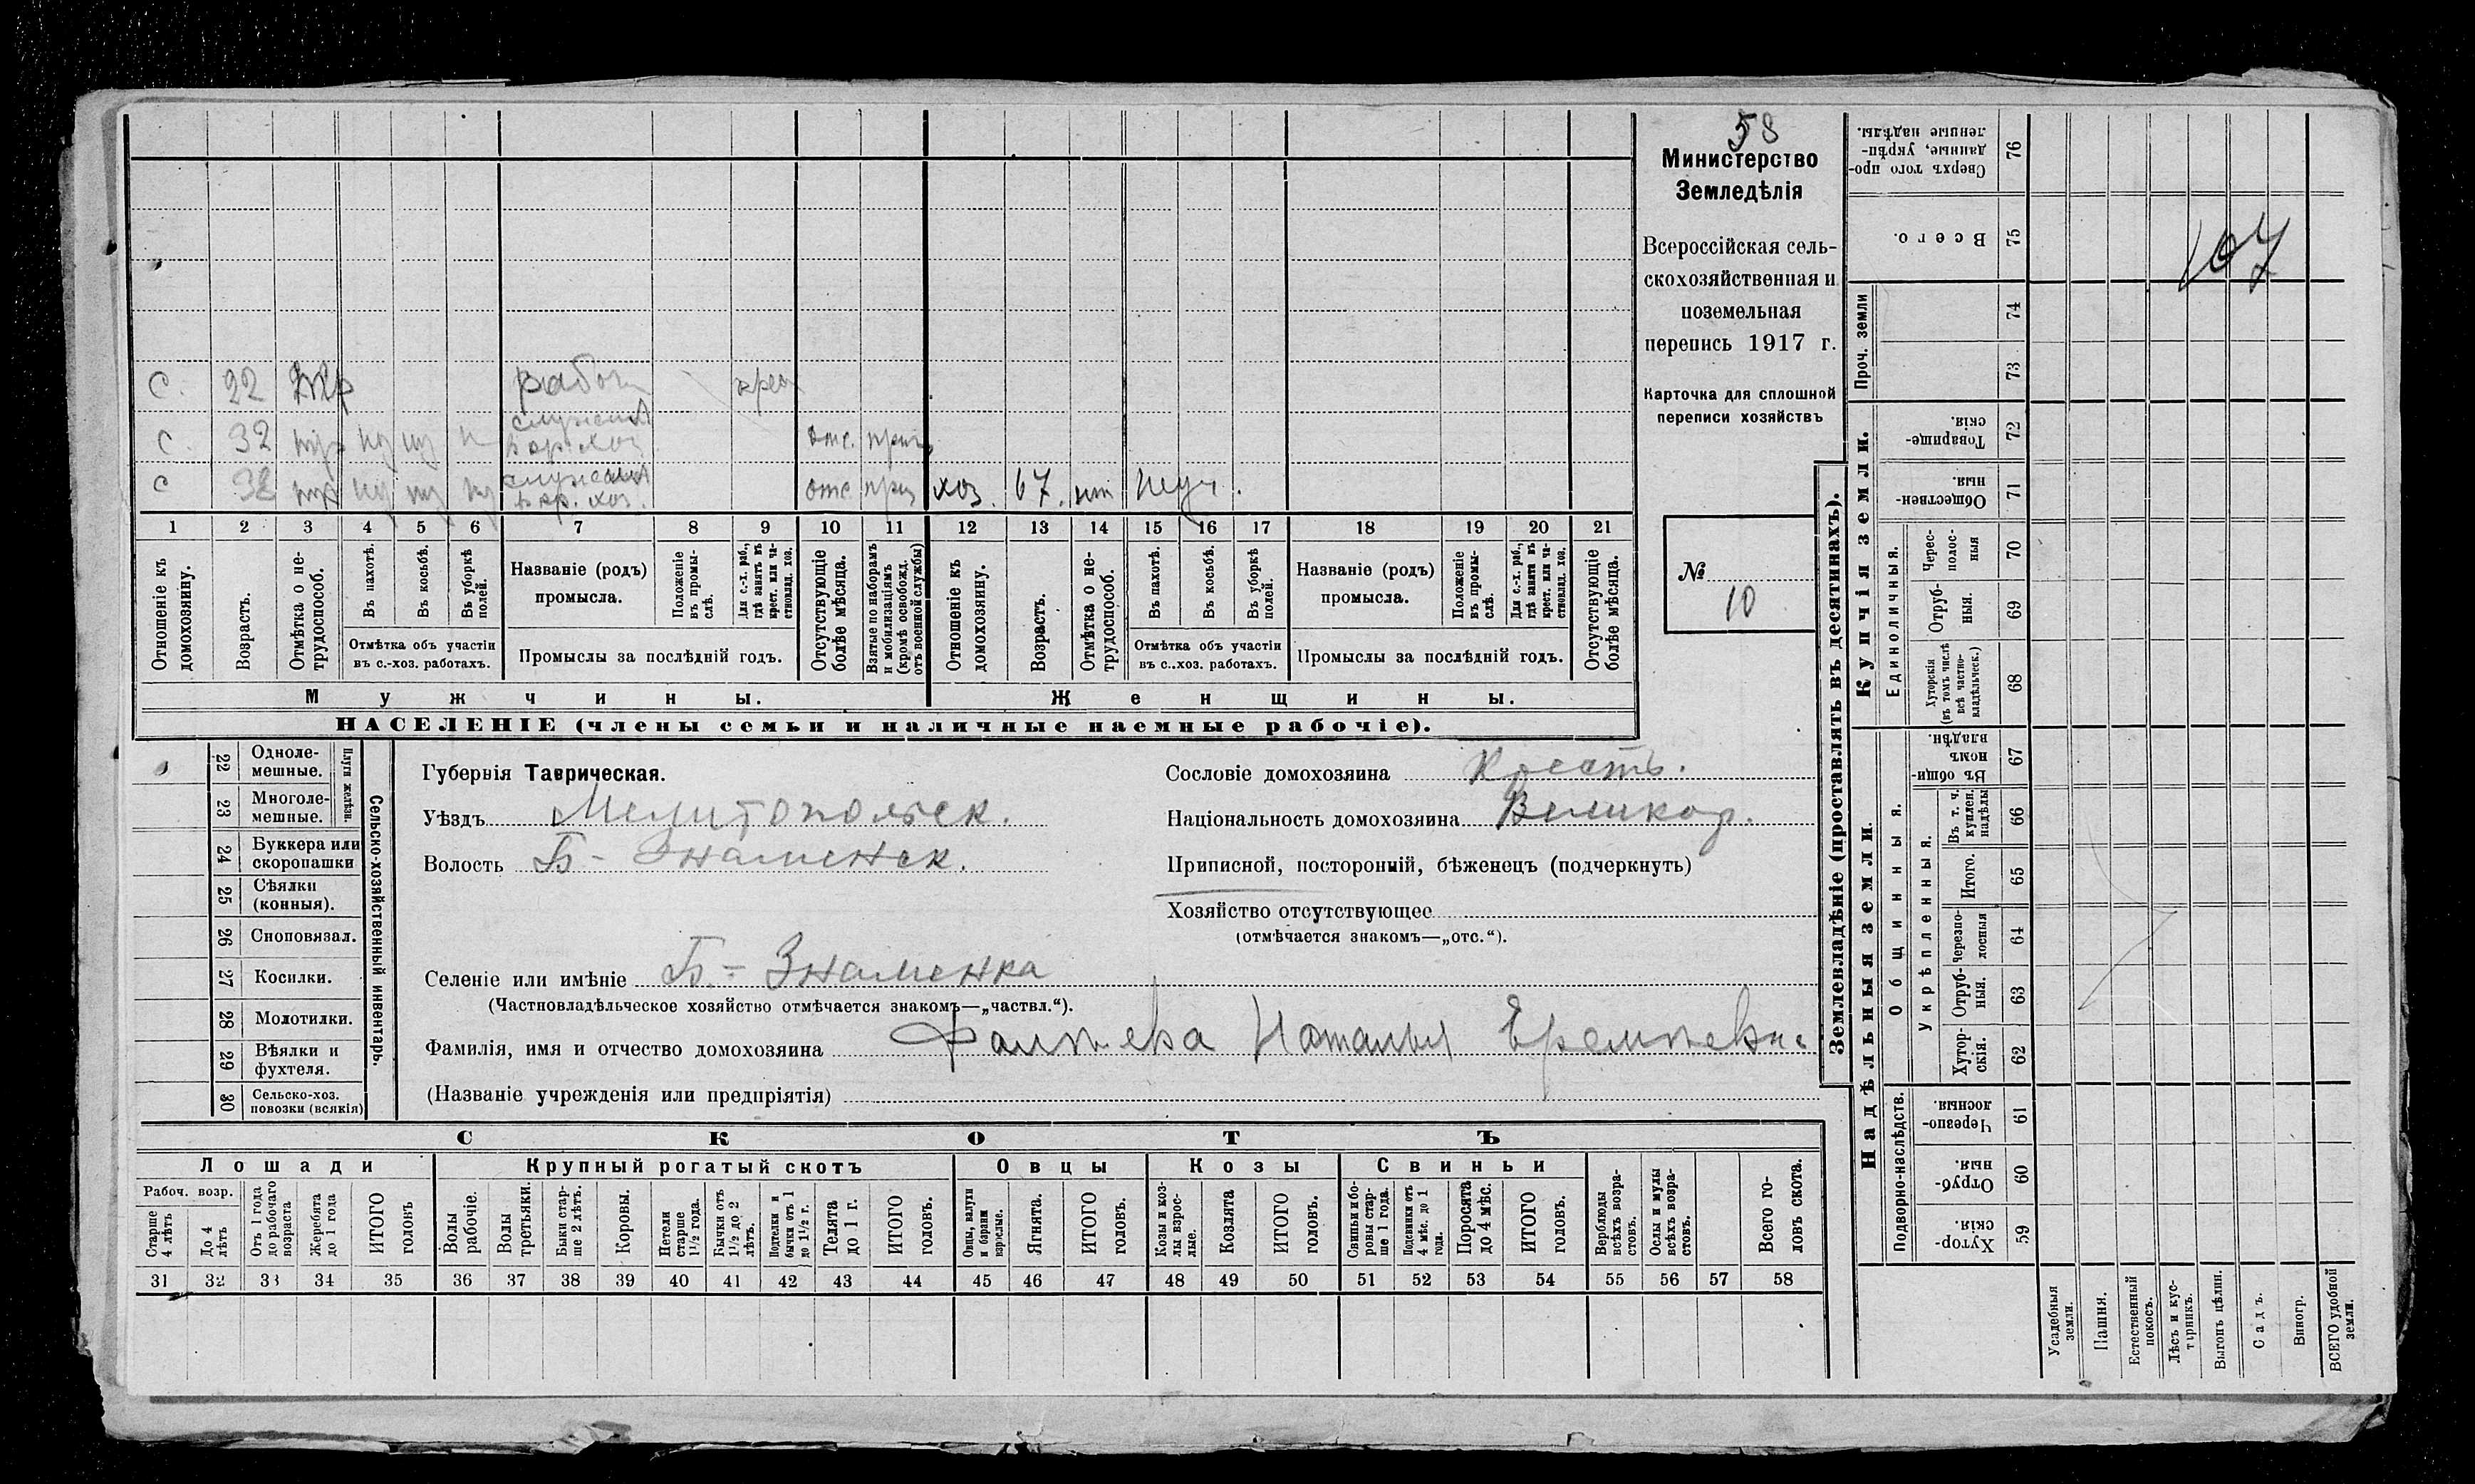 58
Министерство
Земледѣлія
Всероссійская сель-
скохозяйственная и
поземельная
перепись 1917 г.
Карточка для сплошной
переписи хозяйствъ
№
10
107
с. 22 работ крес
с. 32 служит отс. приз
с 32 служит отс приз хоз. 67.
1 2 3 4 5 6 7 8 9 10 11 12 13 14 15 16 17 18 19 20 21
Отношеніе къ домохозяину.
Возрастъ.
Отмѣтка о не-
трудоспособ.
Въ пахотѣ.
Въ косьбѣ.
Въ уборкѣ
полей.
Отмѣтка объ участіи
въ с.-хоз. работахъ.
Названіе (родъ)
промысла.
Положеніе
въ промы-
слѣ.
Для с.-х. раб.,
гдѣ занятъ въ
крест. или ча-
стновлад. хоз.
Промыслы за послѣдній годъ.
Отсутствующіе
болѣе мѣсяца.
Взятые по наборамъ
и мобилизаціямъ
(кромѣ освобожд.
отъ военной службы)
Отношеніе къ
домохозяину.
Возрастъ.
Отмѣтка о не-
трудоспособ.
Въ пахотѣ.
Въ косьбѣ.
Въ уборкѣ
полей.
Отмѣтка объ участіи
въ с.-хоз. работахъ.
Названіе (родъ)
промысла.
Положеніе
въ промы-
слѣ.
Для с.-х. раб.,
гдѣ занята въ
крест. или ча-
стновлад. хоз.
Промыслы за послѣдній годъ.
Отсутствующіе
болѣе мѣсяца.
Мужчины.
Женщины.
НАСЕЛЕНІЕ (члены семьи и наличные наемные рабочіе).
22 Одноле-
мешные.
23 Многоле-
мешные.
Плуги желѣзн.
24 Буккера или
скоропашки
25 Сѣялки
(конныя).
26 Сноповязал.
27 Косилки.
28 Молотилки.
29 Вѣялки и
фухтеля.
30 Сельско-хоз.
повозки (всякія)
Сельско-хозяйственный инвентарь.
Губернія Таврическая.
Уѣздъ Мелитопольск.
Волость Б-Знаменск.
Селеніе или имѣніе Б.-Знаменка
(Частновладѣльческое хозяйство отмѣчается знакомъ—„частвл.“).
Фамилія, имя и отчество домохозяина Фалтева Наталья Еремеевна
(Названіе учрежденія или предпріятія)
Сословіе домохозяина Крест.
Національность домохозяина Великор.
Приписной, посторонній, бѣженецъ (подчеркнуть)
Хозяйство отсутствующее
(отмѣчается знакомъ—„отс.“).
СКОТЪ
Лошади
Крупный рогатый скотъ
Овцы
Козы
Свиньи
Рабоч. возр.
Старше
4 лѣтъ
До 4
лѣтъ
Отъ 1 года
до рабочаго
возраста
Жеребята
до 1 года
ИТОГО
головъ
Волы
рабочіе.
Волы
третьяки.
Быки стар-
ше 2 лѣтъ.
Коровы.
Нетели
старше
1½ года.
Бычки отъ
1½ до 2
лѣтъ.
Подтелки и
бычки отъ 1
до 1½ г.
Телята
до 1 г.
ИТОГО
головъ.
Овцы, валухи
и бараны
взрослые.
Ягнята.
ИТОГО
головъ.
Козы и коз-
лы взрос-
лые.
Козлята
ИТОГО
головъ.
Свиньи и бо-
ровы стар-
ше 1 года.
Подсвинки отъ
4 мѣс. до 1
года.
Поросята
до 4 мѣс.
ИТОГО
головъ.
Верблюды
всѣхъ возра-
стовъ.
Ослы и мулы
всѣхъ возра-
стовъ.
Всего го-
ловъ скота.
31 32 33 34 35 36 37 38 39 40 41 42 43 44 45 46 47 48 49 50 51 52 53 54 55 56 57 58
Землевладѣніе (проставлять въ десятинахъ).
Надѣльныя земли.
Купчія земли.
Проч. земли
Подворно-наслѣдств.
Общинныя.
Укрѣпленныя.
Единоличныя.
Хутор-
скія. 59
Отруб-
ныя. 60
Черезпо-
лосныя. 61
Хутор-
скія. 62
Отруб-
ныя. 63
Черезпо-
лосныя 64
Итого. 65
Въ т. ч.
куплен.
надѣлы 66
Въ общи-
номъ
владѣн. 67
Хуторскія
(въ томъ числѣ
всѣ частно-
владѣльческ.) 68
Отруб-
ныя. 69
Черес-
полос-
ныя 70
Обществен-
ныя. 71
Товарище-
скія. 72
73
74
Всего. 75
Сверхъ того про-
данные, укрѣп-
ленные надѣлы. 76
Усадебныя
земли.
Пашня.
Естественный
покосъ.
Лѣсъ и кус-
тарникъ.
Выгонъ цѣлин.
Садъ.
Виногр.
ВСЕГО удобной
земли.